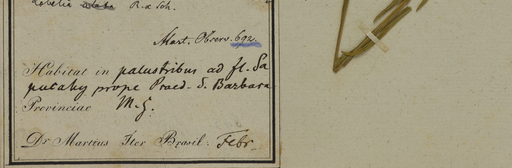 Lobelia R & Sch.
Mart. Observ. 692
Habitat in palustribus ad fl. Sa
pucahy prope Praed. S. Barbara
Provinciae M. G.
Dr Martius Iter Brasil. Febr.